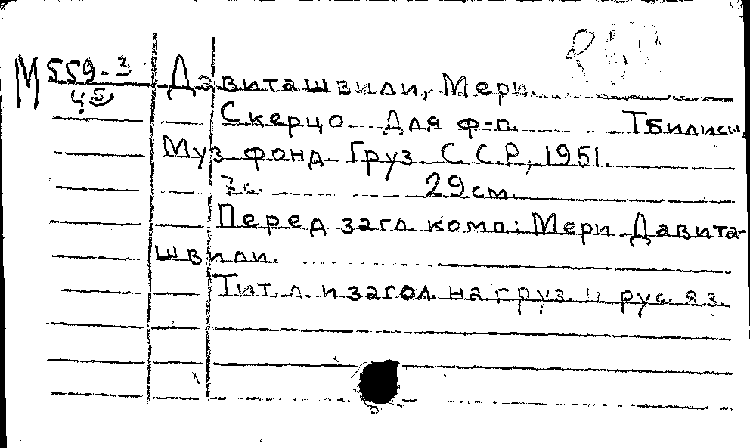 М 559-3 Давиташвили, Мери.
45 Скерцо. Для ф-п. Тбилиси,
Муз фонд Груз. С.С.Р., 1951.
7с. 29см.
Перед загл. комп: Мери Давита-
швили.
Тит. л. и загол. на груз. и рус. яз.